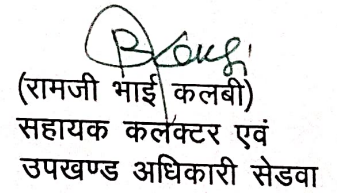 (रामजी भाई कलबी)
सहायक कलेक्टर एवं
उपखण्ड अधिकारी सेडवा